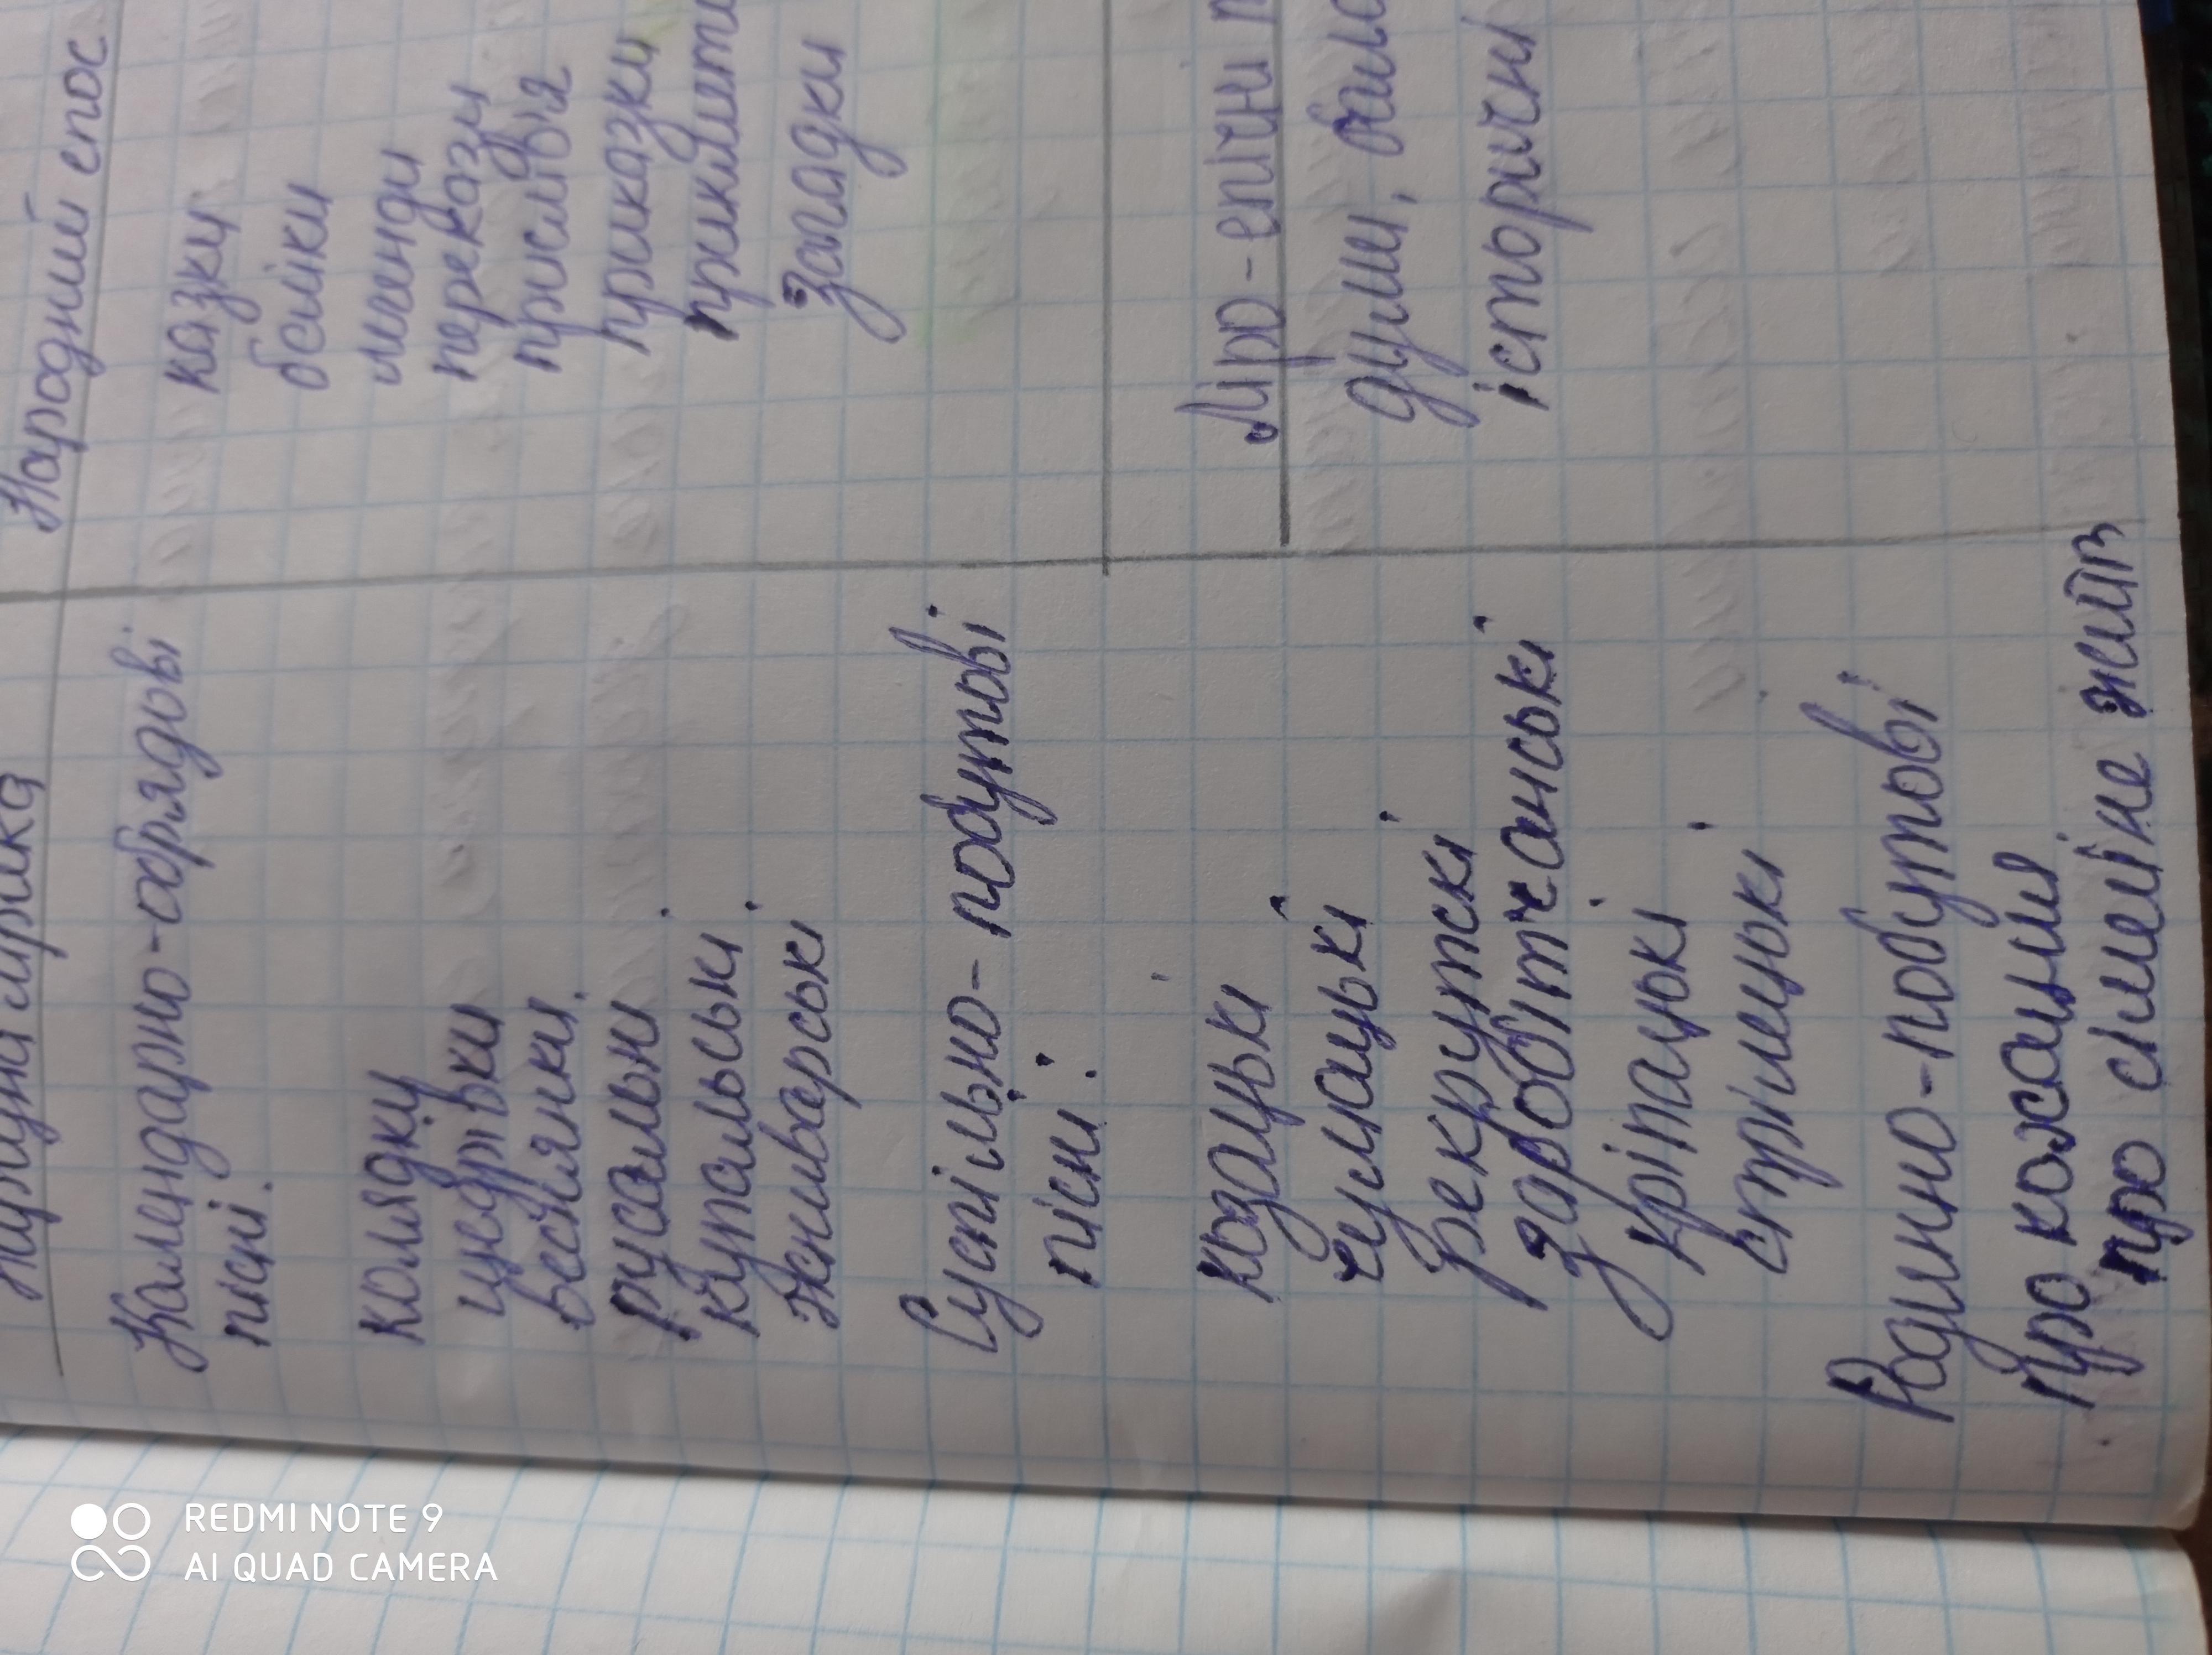 лірика
Календарно-обрядові
пісні.
колядки
щедрівки
веснянки.
русальні
купальські
жниварські
Суспільно-побутові
пісні:
козацькі
чумацькі
рекрутскі
заробітчанські
кріпацькі
стрілецькі
Родинно-побутові
про кохання
про сімейне
Народний епос
казки
легенди
перекази
прислів'я
приказки
загадки
Ліро-епічні
думи,
історичні
REDMI NOTE 9
AI QUAD CAMERA